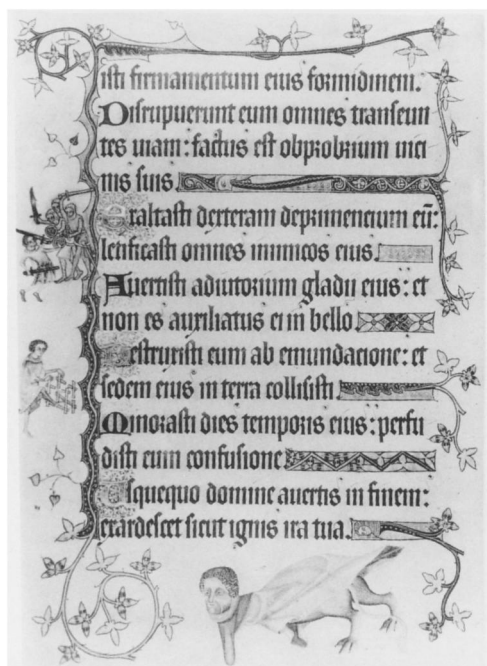 isti firmamentum eius formidinem.
Diripuerunt eum omnes transeun
tes uiam: factus est obprobrium uici
nis suis.
Exaltasti dexteram deprimencium eū:
letificasti omnes inimicos eius.
Auertisti adiutorium gladii eius: et
non es auxiliatus ei in bello
Destruxisti eum ab emundacione: et
sedem eius in terra collisisti.
Minorasti dies temporis eius: perfu
disti eum confusione
Usquequo domine auertis in finem:
exardescet sicut ignis ira tua.